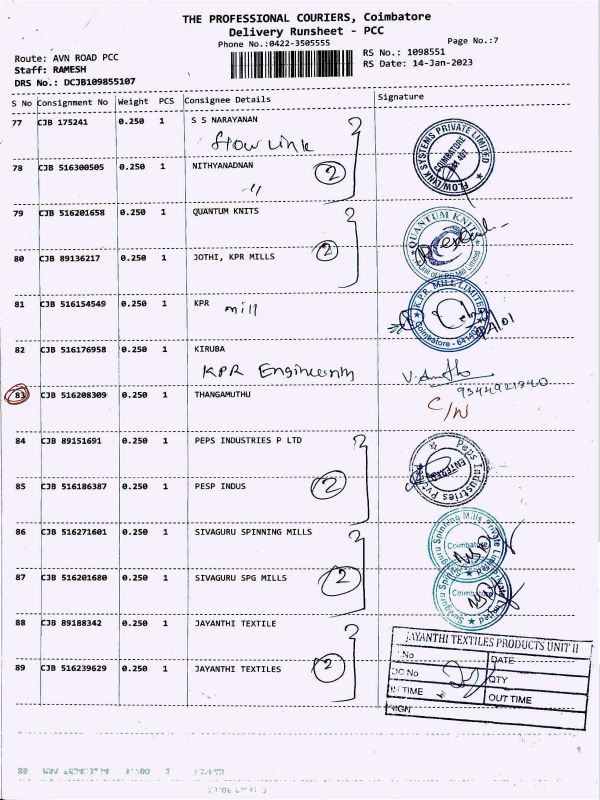 THE PROFESSIONAL COURIERS, Coimbatore
Delivery Runsheet - PCC
Phone No.:0422-3505555
Page No.:7
Route: AVN ROAD PCC
RS No.: 1098551
Staff: RAMESH
RS Date: 14-Jan-2023
DRS No.: DCJB109855107
S No Consignment No Weight PCS Consignee Details Signature
77 CJB 175241 0.250 1 S S NARAYANAN
Flow Link
78 CJB 516300505 0.250 1 NITHYANADNAN
〃 2
FLOWLINK SYSTEMS PRIVATE LIMITED COIMBATORE
79 CJB 516201658 0.250 1 QUANTUM KNITS
QUANTUM KNITS
80 CJB 89136217 0.250 1 JOTHI, KPR MILLS
2
81 CJB 516154549 0.250 1 KPR mill
K.P.R. MILL LIMITED Coimbatore - 641407
82 CJB 516176958 0.250 1 KIRUBA
KPR Engineering
9344921940
83 CJB 516208309 0.250 1 THANGAMUTHU
C/N
84 CJB 89151691 0.250 1 PEPS INDUSTRIES P LTD
Peps Industries Pvt ENTERED
85 CJB 516186387 0.250 1 PESP INDUS
2
86 CJB 516271601 0.250 1 SIVAGURU SPINNING MILLS
Sivaguru Spinning Mills Private Limited Coimbatore
87 CJB 516201680 0.250 1 SIVAGURU SPG MILLS
2
88 CJB 89188342 0.250 1 JAYANTHI TEXTILE
89 CJB 516239629 0.250 1 JAYANTHI TEXTILES
2
JAYANTHI TEXTILES PRODUCTS UNIT II
No DATE
DC No QTY
IN TIME OUT TIME
SIGN